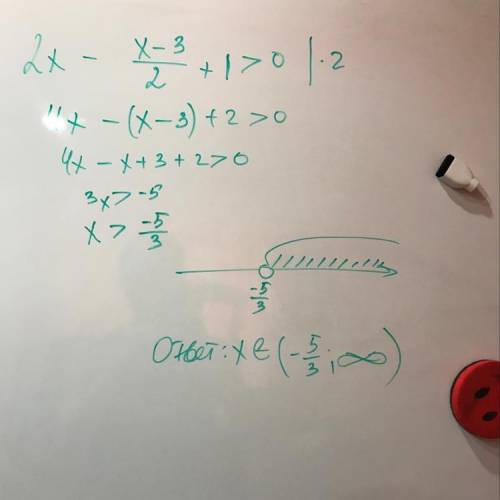 2x - \frac{x-3}{2} + 1 > 0 | · 2
4x - (x-3) + 2 > 0
4x - x + 3 + 2 > 0
3x > -5
x > \frac{-5}{3}
\frac{-5}{3}
Ответ: x ∈ (-\frac{5}{3}; ∞)